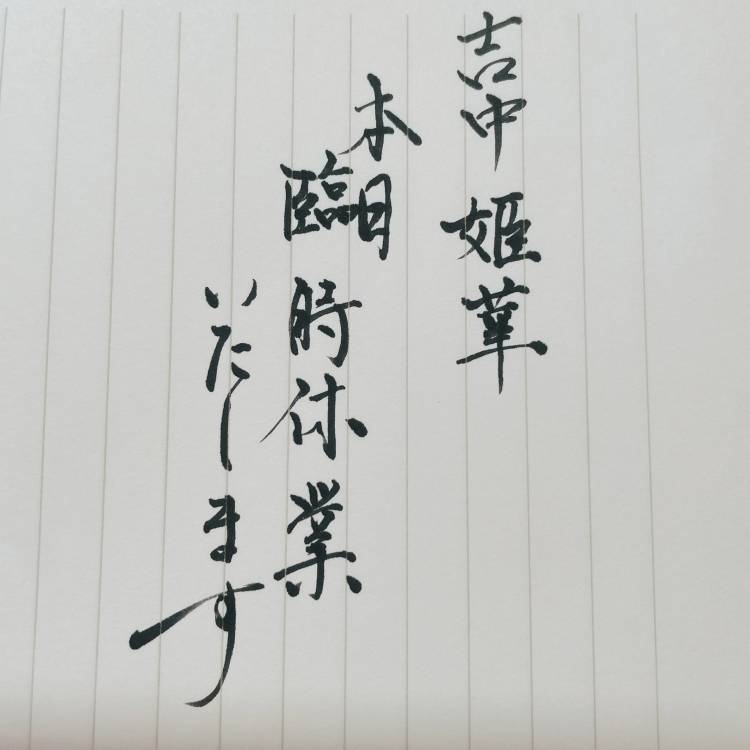 吉中姫華
本日
臨時休業
いたします